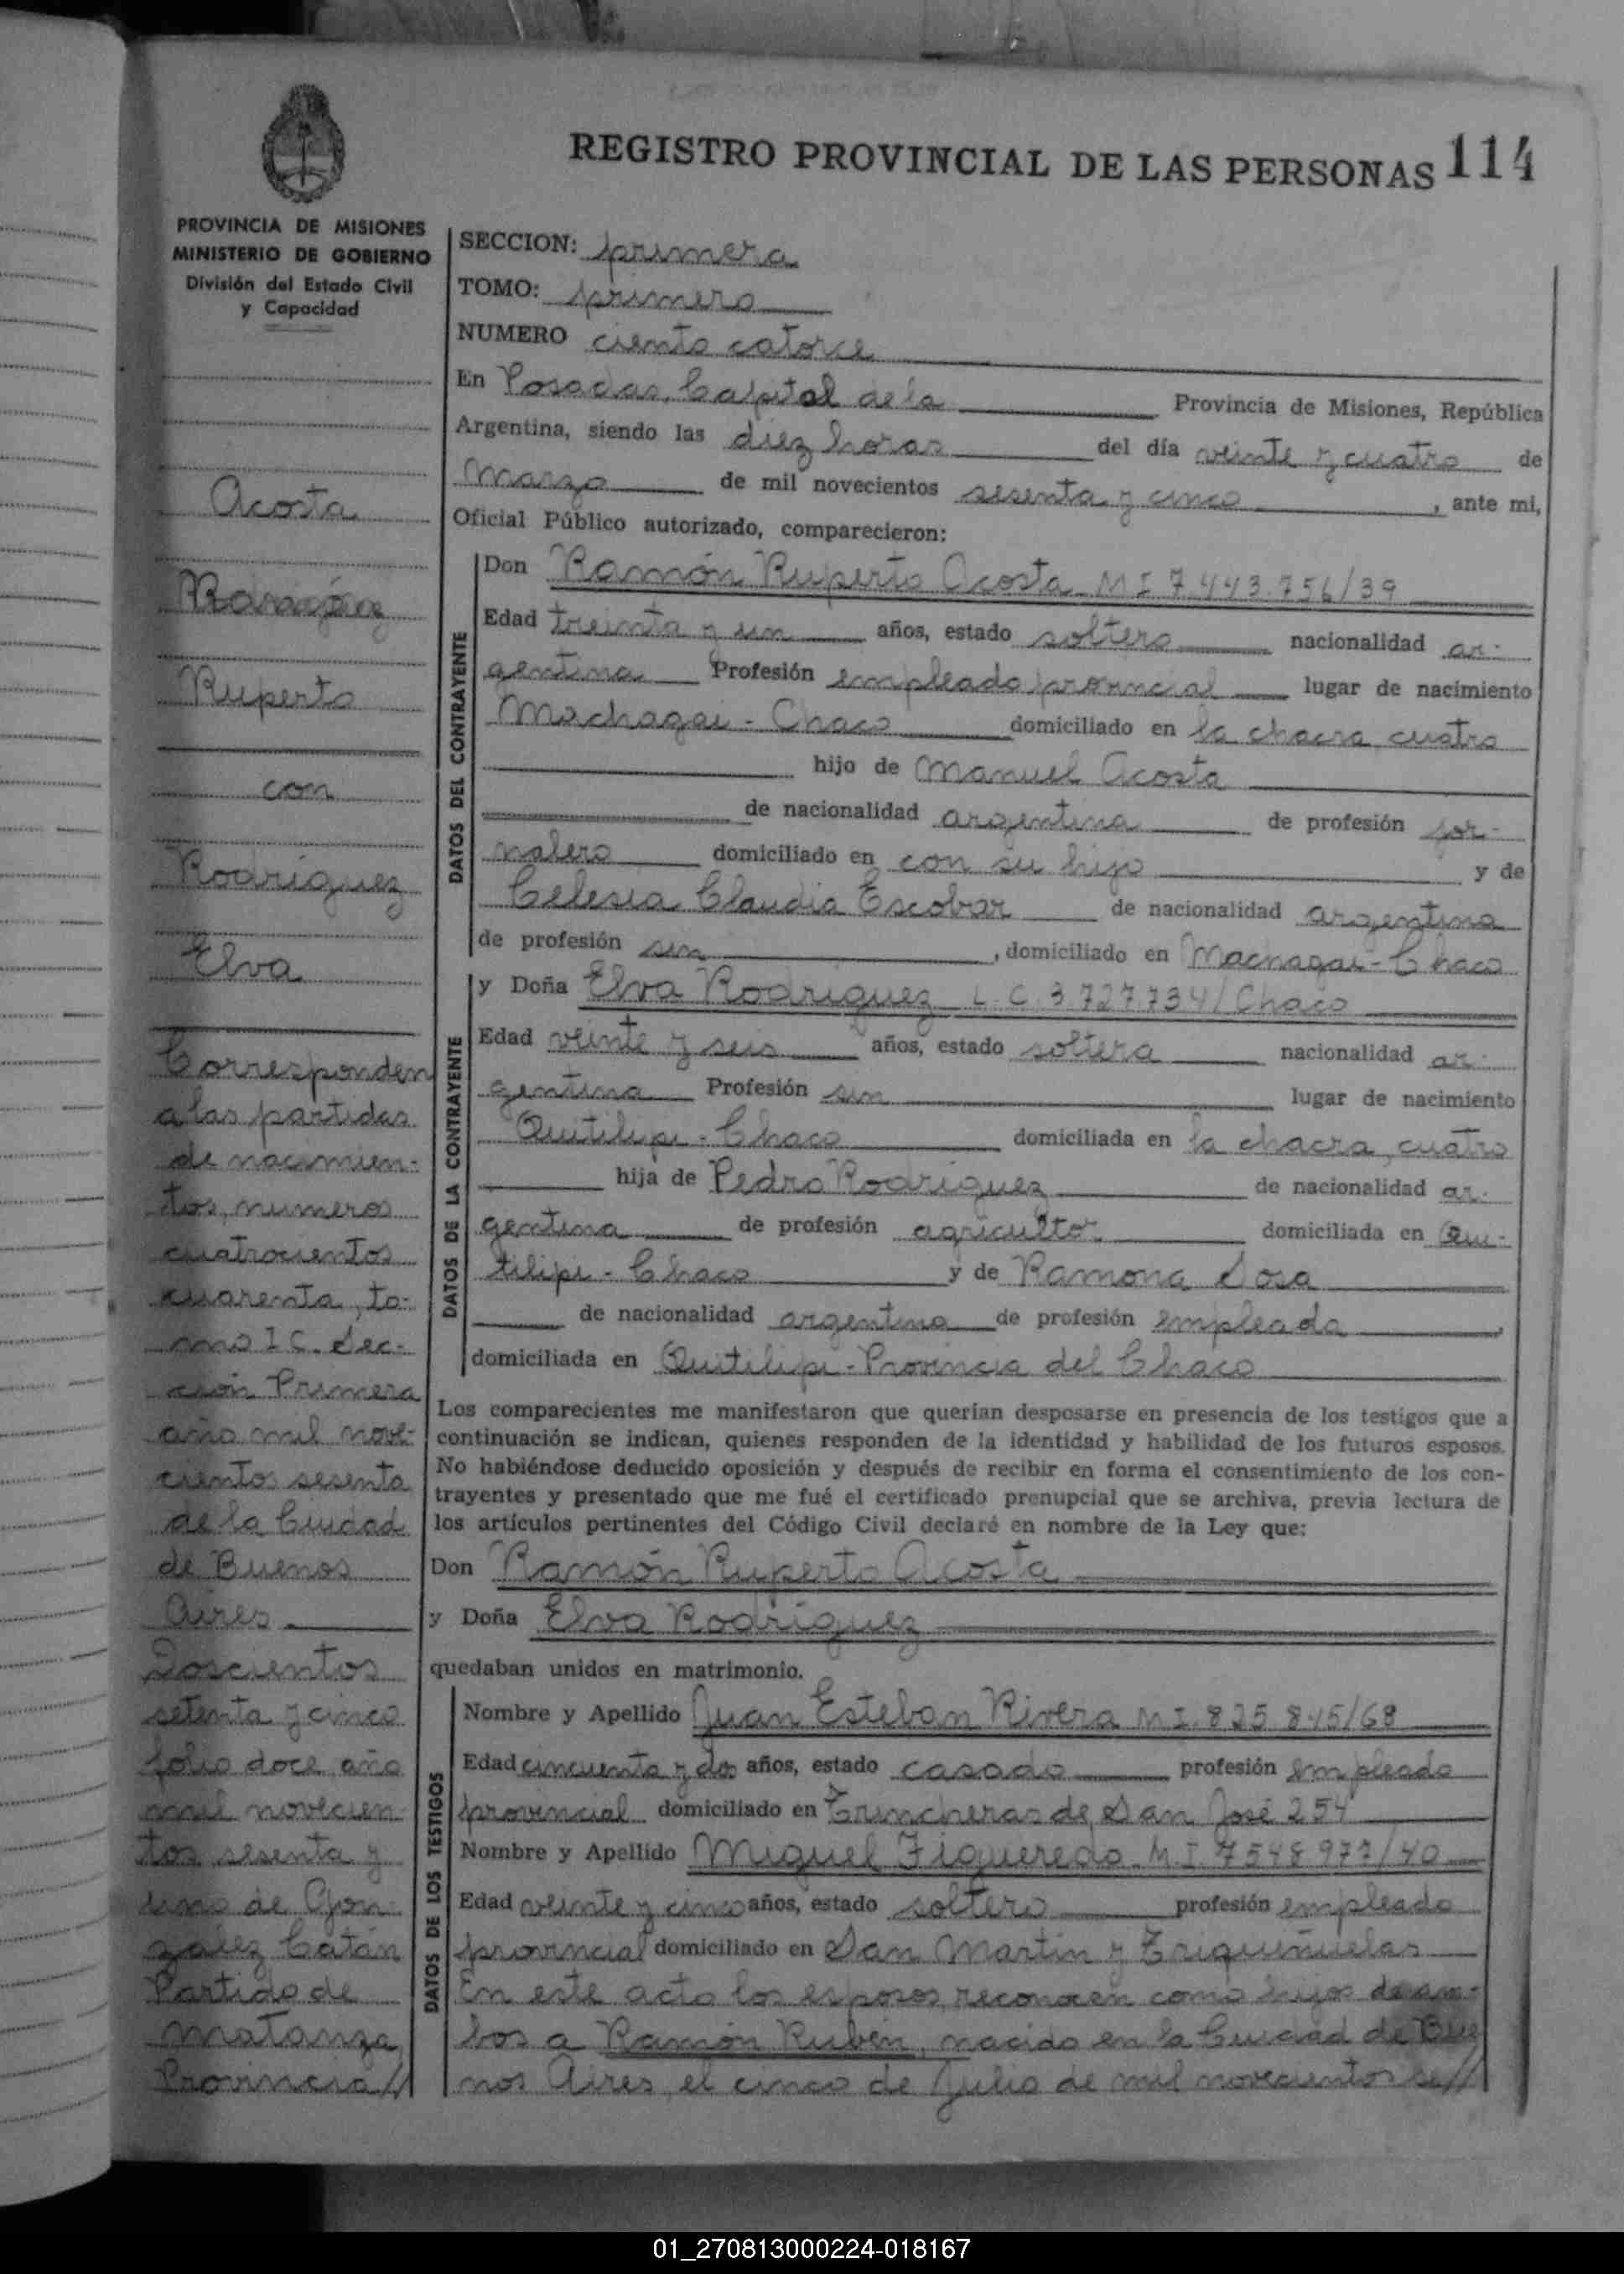 REGISTRO PROVINCIAL DE LAS PERSONAS 114
PROVINCIA DE MISIONES
MINISTERIO DE GOBIERNO
División del Estado Civil
y Capacidad
Acosta
Ramón
Ruperto
con
Rodriguez
Elva
Corresponden
a las partidas
de nacimien-
tos, numeros
cuatrocientos
cuarenta, to-
mo I C. Sec-
ción Primera
año mil nove-
cientos sesenta
de la Ciudad
de Buenos
Aires
Doscientos
setenta y cinco
folio doce año
mil novecien-
tos sesenta y
uno de Gon-
zález Catán
Partido de
Matanza
Provincia//
SECCION: primera
TOMO: primero
NUMERO ciento catorce
En Posadas, Capital de la Provincia de Misiones, República
Argentina, siendo las diez horas del día veinte y cuatro de
Marzo de mil novecientos sesenta y cinco, ante mi,
Oficial Público autorizado, comparecieron:
DATOS DEL CONTRAYENTE
Don Ramón Ruperto Acosta M I 7.443.756/39
Edad treinta y un años, estado soltero nacionalidad ar-
gentina Profesión empleado provincial lugar de nacimiento
Machagai - Chaco domiciliado en la chacra cuatro
hijo de Manuel Acosta
de nacionalidad argentina de profesión jor-
nalero domiciliado en con su hijo y de
Celesia Claudia Escobar de nacionalidad argentina
de profesión sin, domiciliado en Machagai - Chaco
DATOS DE LA CONTRAYENTE
y Doña Elva Rodriguez L. C. 3.727.734/Chaco
Edad veinte y seis años, estado soltera nacionalidad ar-
gentina Profesión sin lugar de nacimiento
Quitilipi - Chaco domiciliada en la chacra, cuatro
hija de Pedro Rodriguez de nacionalidad ar-
gentina de profesión agricultor domiciliada en Qui-
tilipi - Chaco y de Ramona Sosa
de nacionalidad argentina de profesión empleada,
domiciliada en Quitilipi - Provincia del Chaco
Los comparecientes me manifestaron que querían desposarse en presencia de los testigos que a
continuación se indican, quienes responden de la identidad y habilidad de los futuros esposos.
No habiéndose deducido oposición y después de recibir en forma el consentimiento de los con-
trayentes y presentado que me fué el certificado prenupcial que se archiva, previa lectura de
los artículos pertinentes del Código Civil declaré en nombre de la Ley que:
Don Ramón Ruperto Acosta
y Doña Elva Rodriguez
quedaban unidos en matrimonio.
DATOS DE LOS TESTIGOS
Nombre y Apellido Juan Esteban Rivera M I. 825.845/68
Edad cincuenta y dos años, estado casado profesión empleado
provincial domiciliado en Trincheras de San José 254
Nombre y Apellido Miguel Figueredo M. I. 7548977/40
Edad veinte y cinco años, estado soltero profesión empleado
provincial domiciliado en San Martin y Triquiñuelas
En este acto los esposos reconocen como hijos de am-
bos a Ramón Rubén, nacido en la Ciudad de Bue
nos Aires, el cinco de Julio de mil novecientos se//
01_270813000224-018167